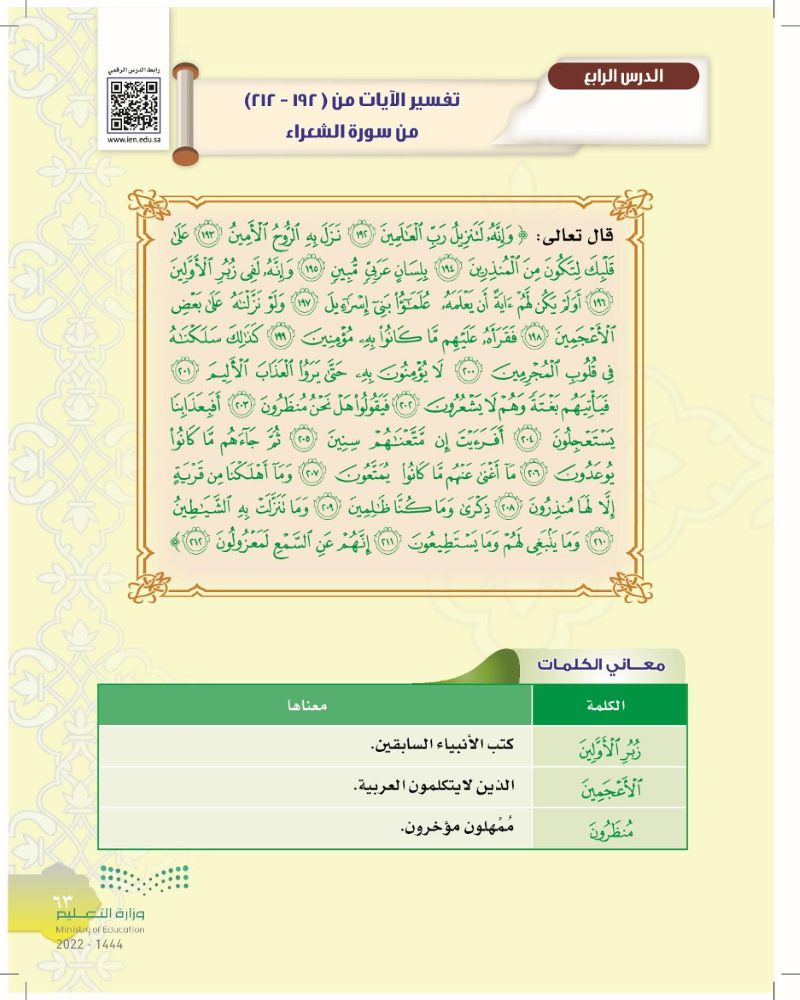 رابط الدرس الرقمي
www.ien.edu.sa
الدرس الرابع
تفسير الآيات من (١٩٢ - ٢١٢)
من سورة الشعراء
قال تعالى: ﴿ وَإِنَّهُۥ لَتَنزِيلُ رَبِّ ٱلْعَٰلَمِينَ ١٩٢ نَزَلَ بِهِ ٱلرُّوحُ ٱلْأَمِينُ ١٩٣ عَلَىٰ
قَلْبِكَ لِتَكُونَ مِنَ ٱلْمُنذِرِينَ ١٩٤ بِلِسَانٍ عَرَبِىٍّ مُّبِينٍ ١٩٥ وَإِنَّهُۥ لَفِى زُبُرِ ٱلْأَوَّلِينَ
١٩٦ أَوَلَمْ يَكُن لَّهُمْ ءَايَةً أَن يَعْلَمَهُۥ عُلَمَٰٓؤُا۟ بَنِىٓ إِسْرَٰٓءِيلَ ١٩٧ وَلَوْ نَزَّلْنَٰهُ عَلَىٰ بَعْضِ
ٱلْأَعْجَمِينَ ١٩٨ فَقَرَأَهُۥ عَلَيْهِم مَّا كَانُوا۟ بِهِۦ مُؤْمِنِينَ ١٩٩ كَذَٰلِكَ سَلَكْنَٰهُ
فِى قُلُوبِ ٱلْمُجْرِمِينَ ٢٠٠ لَا يُؤْمِنُونَ بِهِۦ حَتَّىٰ يَرَوُا۟ ٱلْعَذَابَ ٱلْأَلِيمَ ٢٠١
فَيَأْتِيَهُم بَغْتَةً وَهُمْ لَا يَشْعُرُونَ ٢٠٢ فَيَقُولُوا۟ هَلْ نَحْنُ مُنظَرُونَ ٢٠٣ أَفَبِعَذَابِنَا
يَسْتَعْجِلُونَ ٢٠٤ أَفَرَءَيْتَ إِن مَّتَّعْنَٰهُمْ سِنِينَ ٢٠٥ ثُمَّ جَآءَهُم مَّا كَانُوا۟
يُوعَدُونَ ٢٠٦ مَآ أَغْنَىٰ عَنْهُم مَّا كَانُوا۟ يُمَتَّعُونَ ٢٠٧ وَمَآ أَهْلَكْنَا مِن قَرْيَةٍ
إِلَّا لَهَا مُنذِرُونَ ٢٠٨ ذِكْرَىٰ وَمَا كُنَّا ظَٰلِمِينَ ٢٠٩ وَمَا تَنَزَّلَتْ بِهِ ٱلشَّيَٰطِينُ
٢١٠ وَمَا يَنۢبَغِى لَهُمْ وَمَا يَسْتَطِيعُونَ ٢١١ إِنَّهُمْ عَنِ ٱلسَّمْعِ لَمَعْزُولُونَ ٢١٢ ﴾
معـــاني الكلمات
الكلمة معناها
زُبُرِ ٱلْأَوَّلِينَ كتب الأنبياء السابقين.
ٱلْأَعْجَمِينَ الذين لايتكلمون العربية.
مُنظَرُونَ مُمْهلون مؤخرون.
٦٣
وزارة التعـــليم
Ministry of Education
2022 - 1444